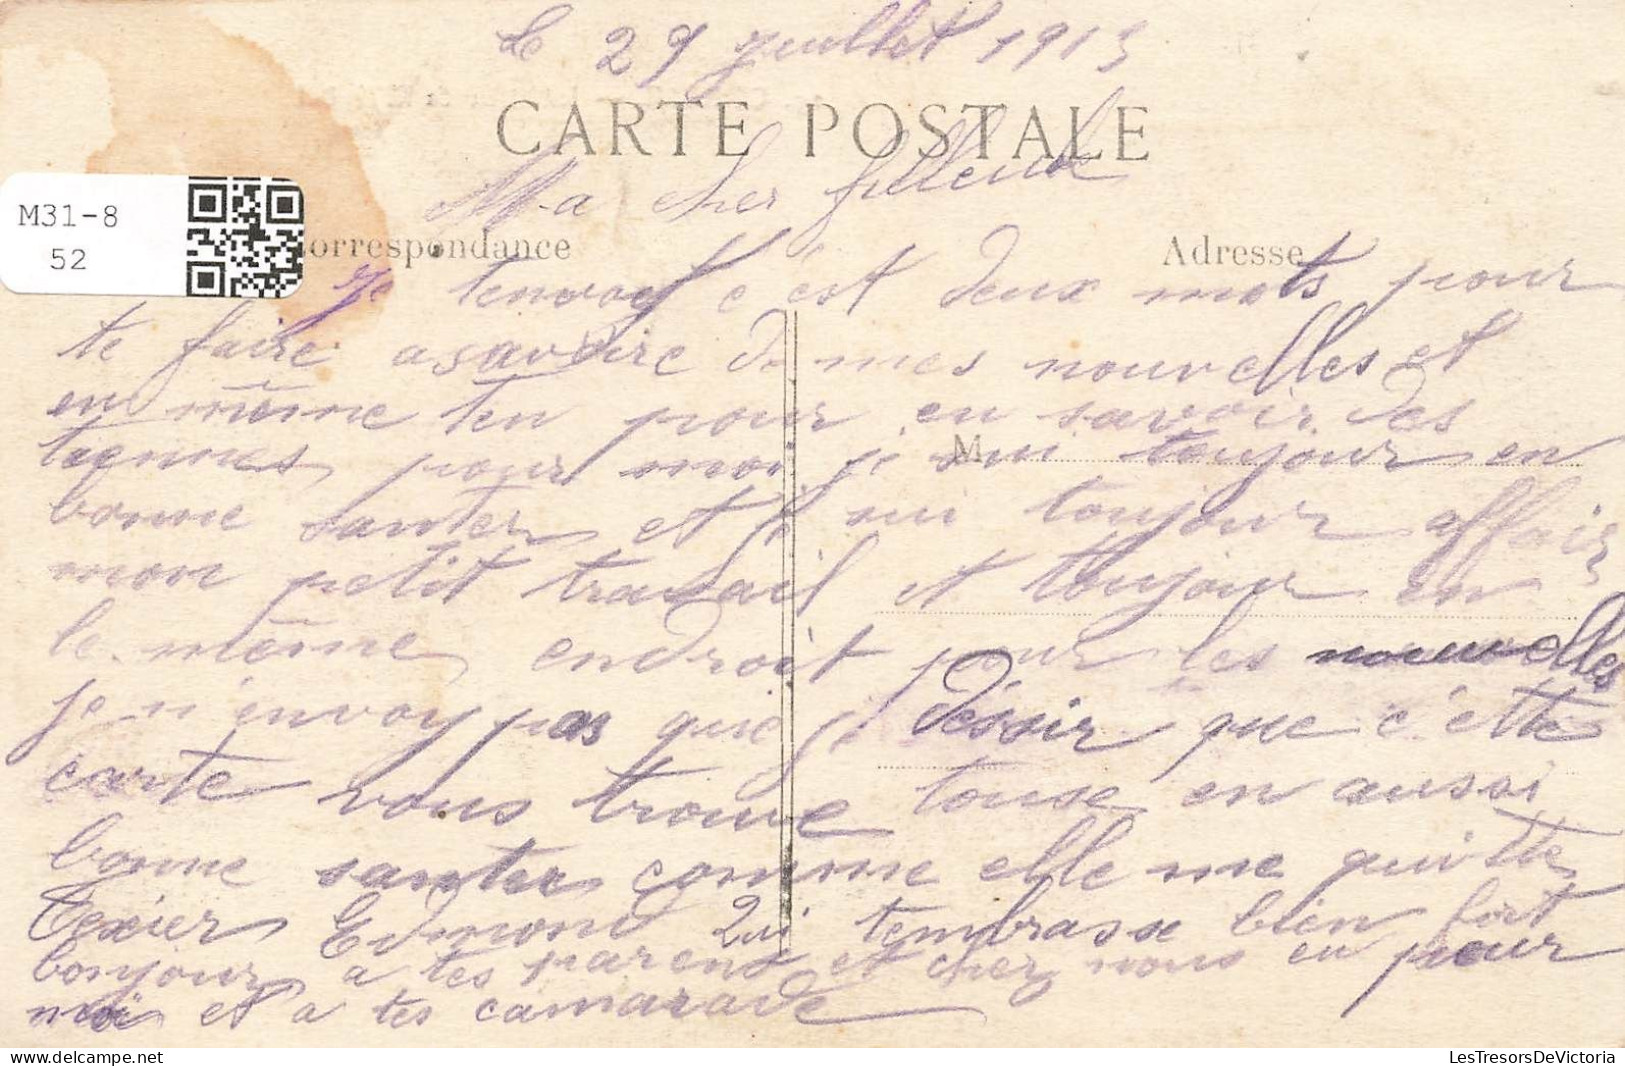 Le 29 juillet 1915
CARTE POSTALE
Ma cher filleule
M31-8
52
Correspondance
Adresse
Je tenvoy c'est deux mots pour
te faire asavoire de mes nouvelles et
en même ten pour en savoir des
tiennes pour moi je sui toujour en
M
bonne santer et je sui toujour affair
mon petit travail et toujour en
le même endroit pour les nouvelles
je n'envoy pas que je désoir que c'ette
carte vous trouve touse en aussi
bonne santer comme elle me quitte
Texier Edmond Qui tembrasse bien fort
bonjour a tes parent et chez nous en pour
moi et a tes camarade
LesTresorsDeVictoria